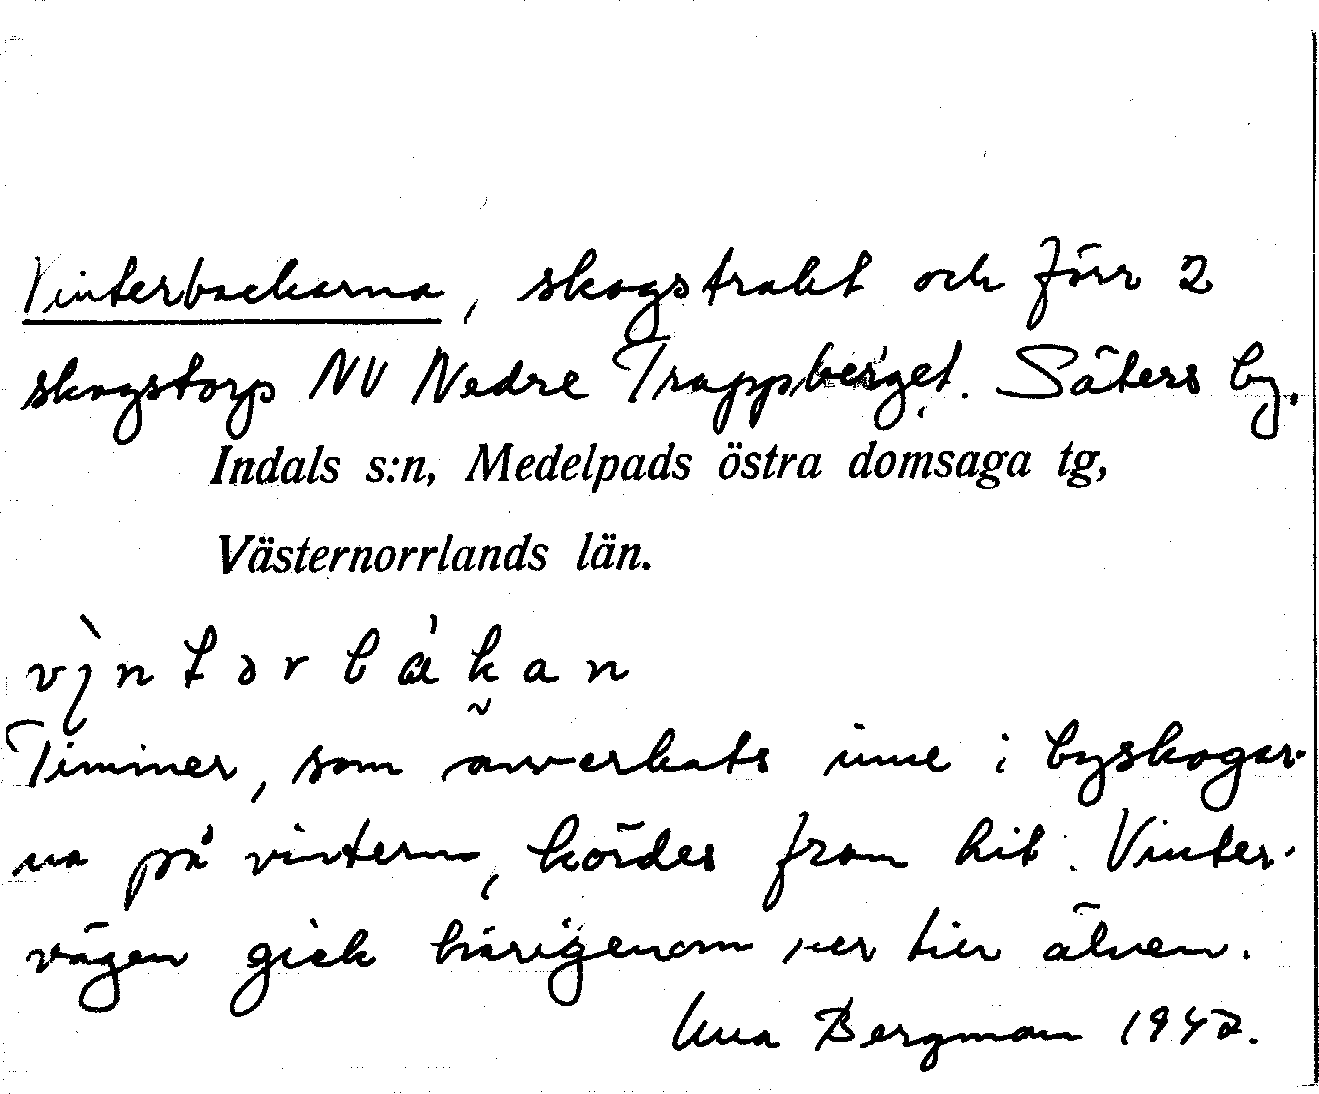 Vinterbackarna, skogstrakt och förr 2
skogstorp NV Nedre Trappberget. Säters by.
Indals s:n, Medelpads östra domsaga tg,
Västernorrlands län.
vìntərbákan
Timmer, som avverkats inne i byskogar-
na på vintern, kördes fram hit. Vinter-
vägen gick härigenom ner till älven.
Bergman 1942.